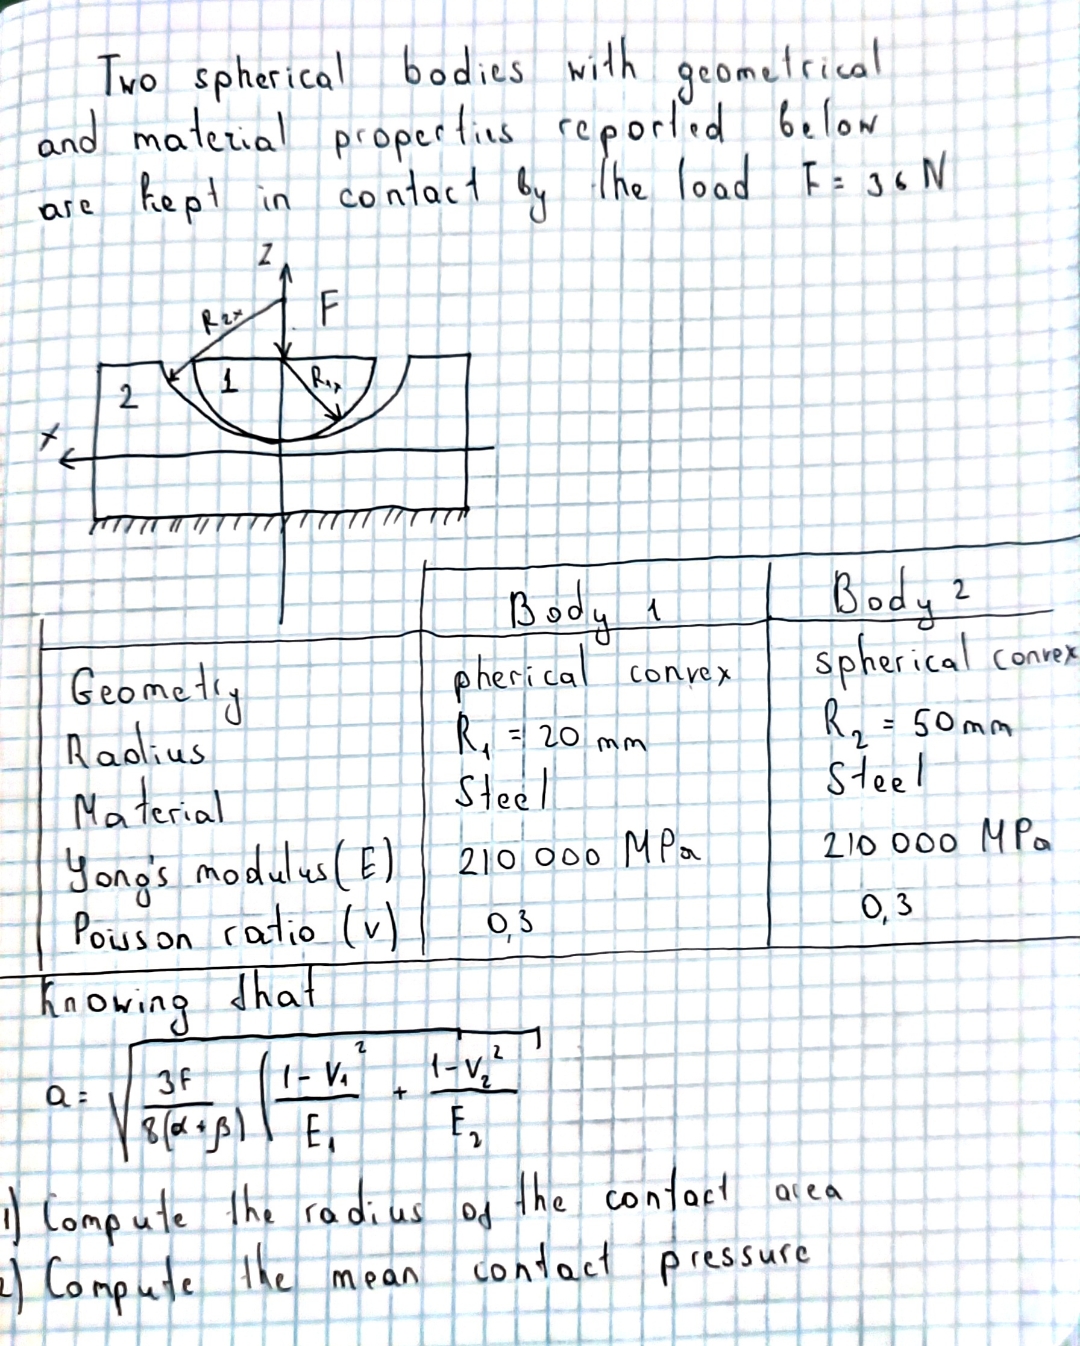 Two spherical bodies with geometrical
and material properties reported below
are kept in contact by the load F = 36 N
Z
R2x
F
1
R1x
2
X
Body 1 Body 2
Geometry pherical convex spherical convex
Radius R1 = 20 mm R2 = 50 mm
Material Steel Steel
Yong's modulus (E) 210 000 MPa 210 000 MPa
Poisson ratio (v) 0,3 0,3
Knowing that
a = √ 3F / 8(α + β) ( 1 - V1² / E1 + 1 - V2² / E2
1) Compute the radius of the contact area
2) Compute the mean contact pressure